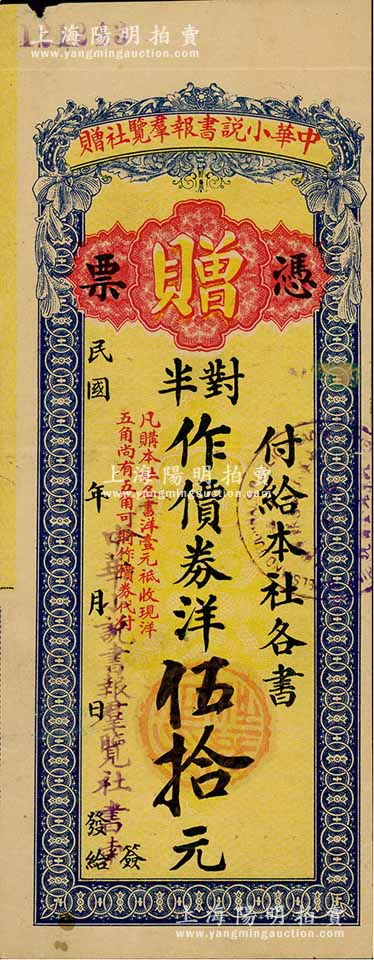 上海陽明拍賣
www.yangmingauction.com
中華小説書報羣覽社贈
憑贈票
付給本社各書
對半作價券洋伍拾元
凡購本
書洋壹元衹收現洋
五角尚有五角可將作價券代付
民國 年 月 日 發給
簽
書報羣覽社書
上海陽明拍賣
www.yangmingauction.com
上海陽明拍賣
www.yangmingauction.com